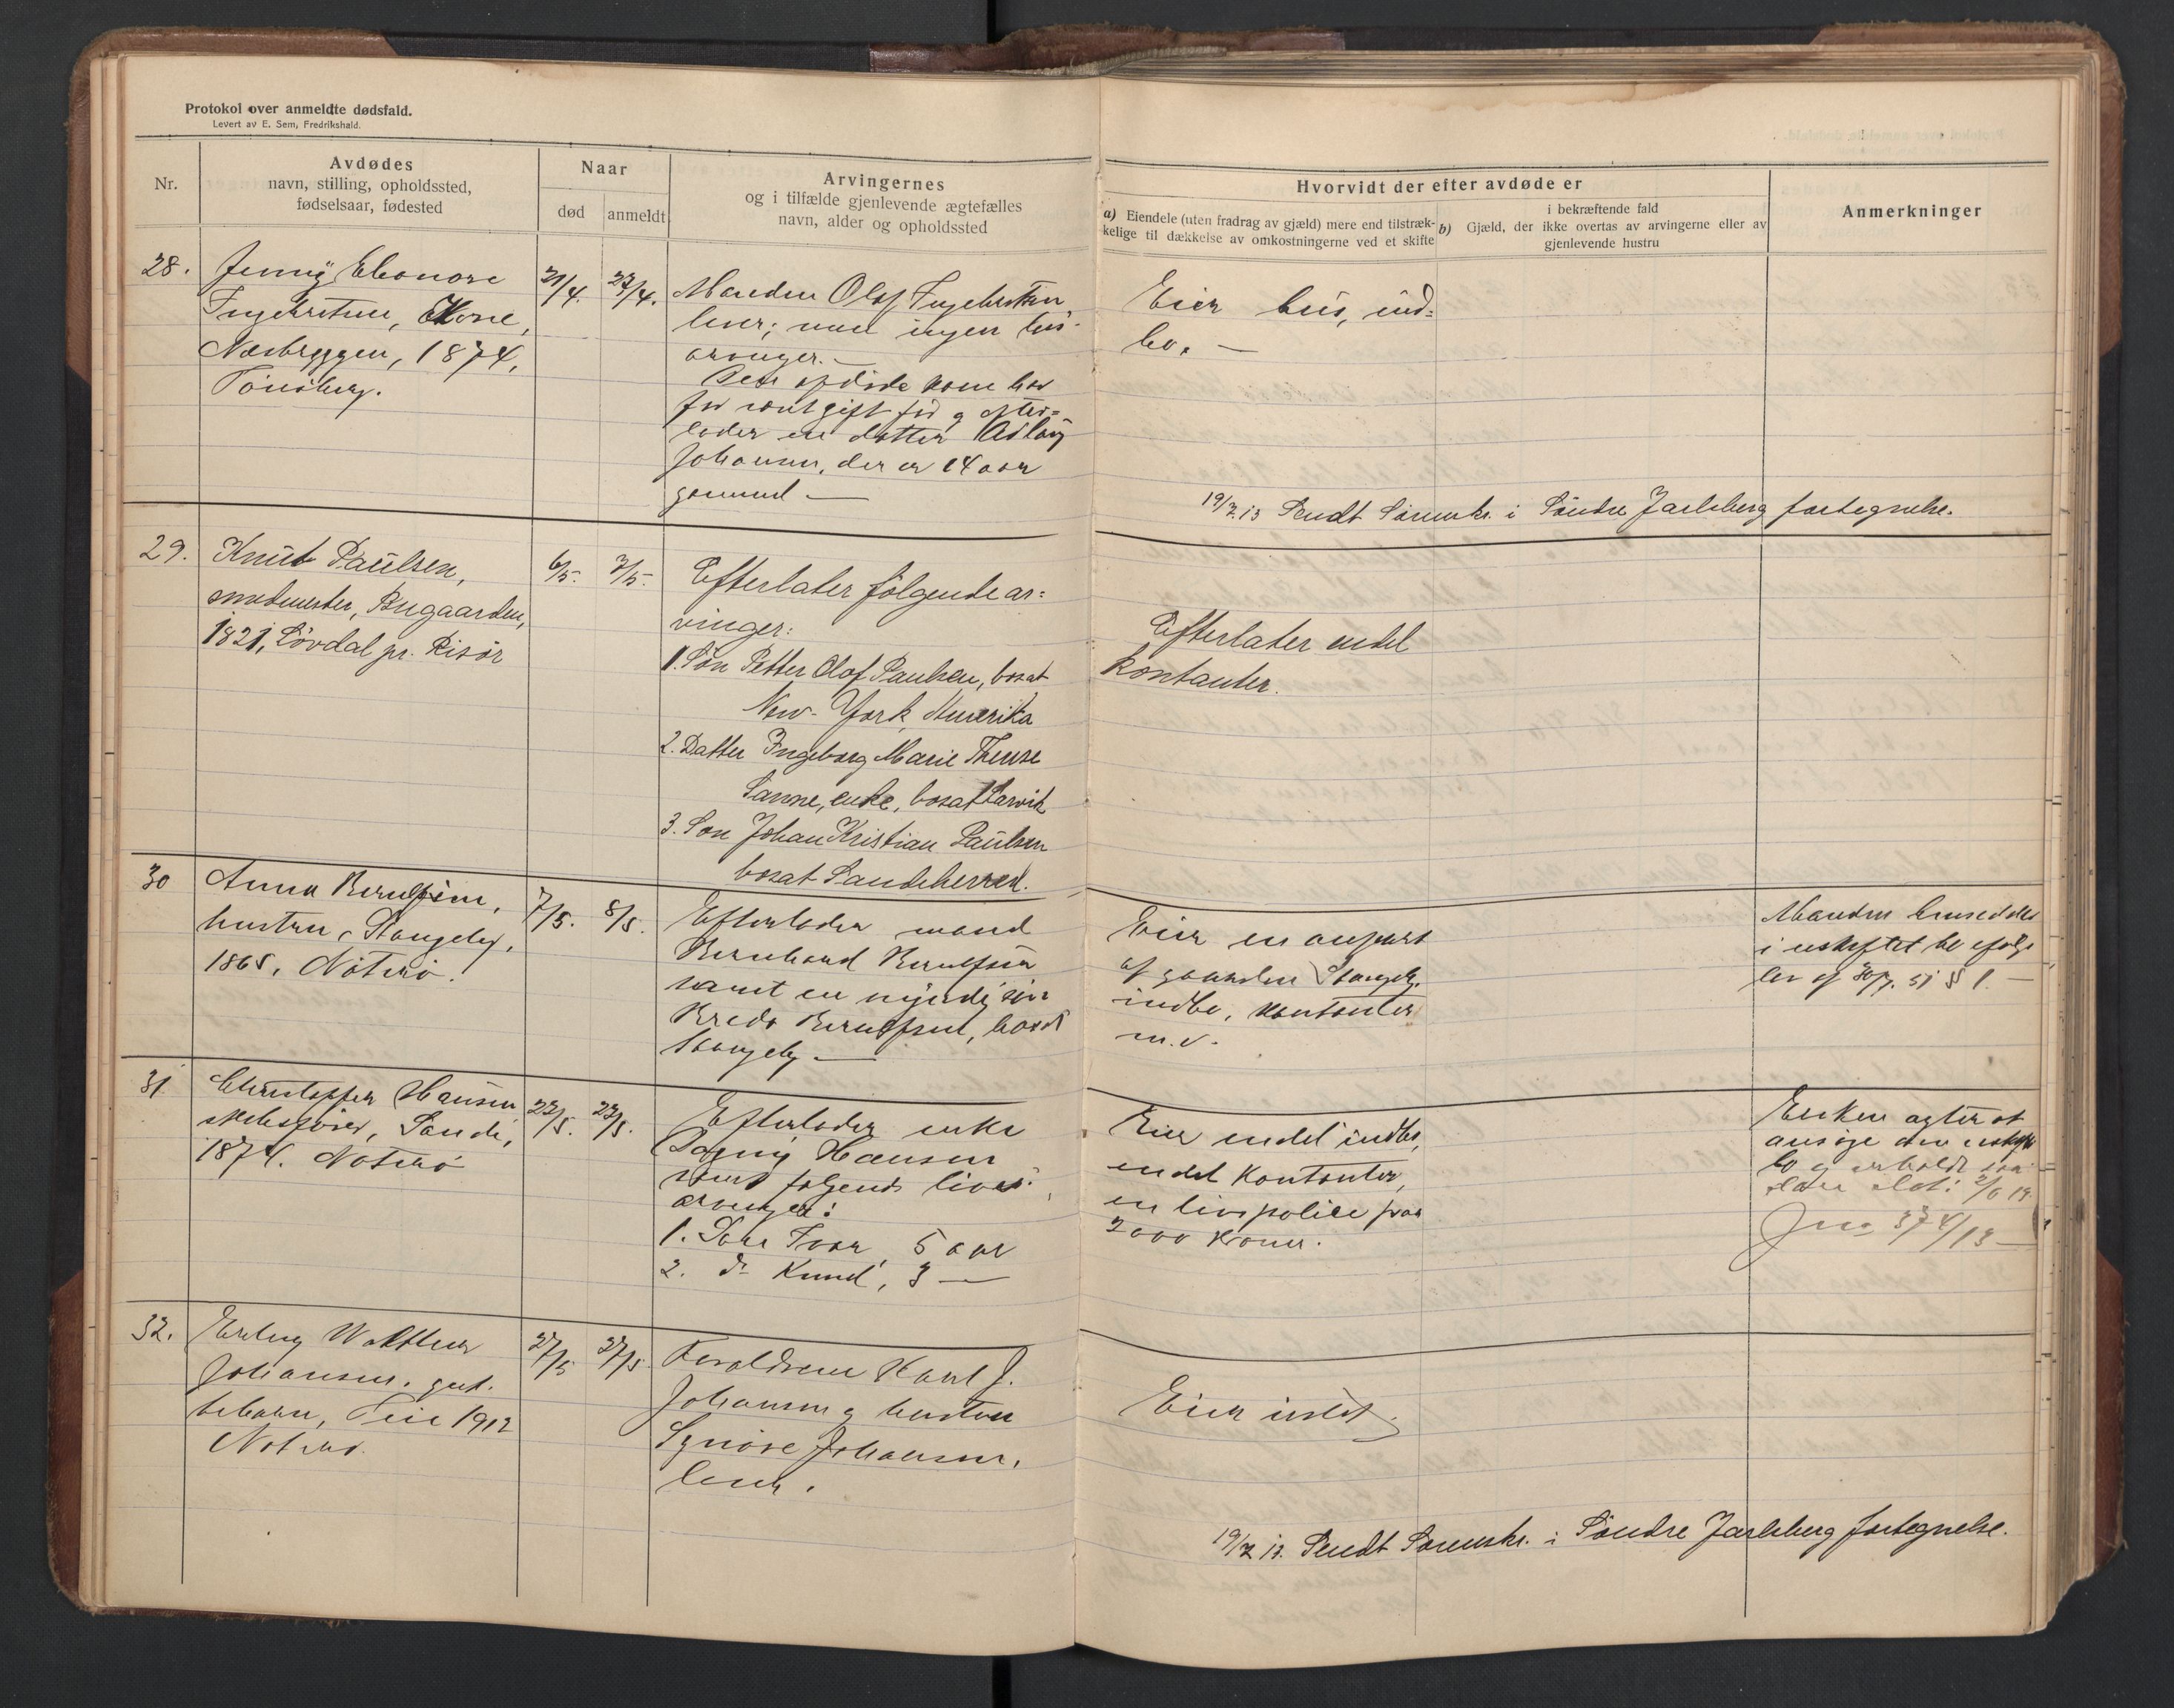 Protokol over anmeldte dødsfald.
Levert av E. Sem, Fredrikshald.
Nr.
Avdødes
navn, stilling, opholdssted,
fødselsaar, fødested
Naar
død
anmeldt
Arvingernes
og i tilfælde gjenlevende ægtefælles
navn, alder og opholdssted
Hvorvidt der efter avdøde er
a) Eiendele (uten fradrag av gjæld) mere end tilstræk-
kelige til dækkelse av omkostningerne ved et skifte
i bekræftende fald
b) Gjæld, der ikke overtas av arvingerne eller av
gjenlevende hustru
Anmerkninger
28. Jenny Eleonore
Ingebretsen, Kone,
Næsbryggen, 1874,
Tönsberg.
21/4. 27/4.
Manden Olaf Ingebretsen
lever; med ingen livs-
arvinger. —
Den afdöde kone har
för vært gift før og efter-
lader en datter Aslaug
Johansen, der er 14 aar
gammel —
Eier hus, ind-
bo. —
19/7.13 Sendt Sorenskr. i Söndre Jarlsberg fortegnelse.
29. Knut Paulsen,
smedmester, Bugaarden,
1821, Lövdal pr. Risör
6/5. 7/5.
Efterlater fölgende ar-
vinger:
1. Sön Petter Olaf Paulsen, bosat
New-York, Amerika
2. Datter Ingeborg Marie Therese
Sanne, enke, bosat Larvik
3. Sön Johan Kristian Paulsen
bosat Sandeherred.
Efterlater endel
kontanter.
30 Anna Berntsen,
hustru, Stangeby,
1865, Nöterö.
7/5. 8/5.
Efterlader mand
Bernhard Berntsen
samt en myndig sön
Berntsen, bosat
Stangeby —
Eier en anpart
af gaarden Stangeby,
indbo, kontanter
m.v.
Manden hensidder
i uskiftet bo ifölge
lov af 30/7. 51 § 1. —
31 Christoffer Hansen
skibsförer, Sande,
1874. Nöterö
22/5. 23/5.
Efterlader enke
Dagny Hansen
samt fölgende livs-
arvinger:
1. Sön Ivar, 5 aar
2. d- Knud, 3 —
Eier endel indbo,
endel kontanter,
en livspolice paa
2000 kroner.
Enken agter at
ansöge om uskiftet
bo og
Jno 374/13 —
32. Erling Walther
Johansen, gut-
tebarn, Teie 1912
Nöterö.
27/5 27/5.
Foreldrene Karl J.
Johansen og hustru
Synöve Johansen,
lever.
Eier intet.
19/7 13. Sendt Sorenskr. i Söndre Jarlsberg fortegnelse.